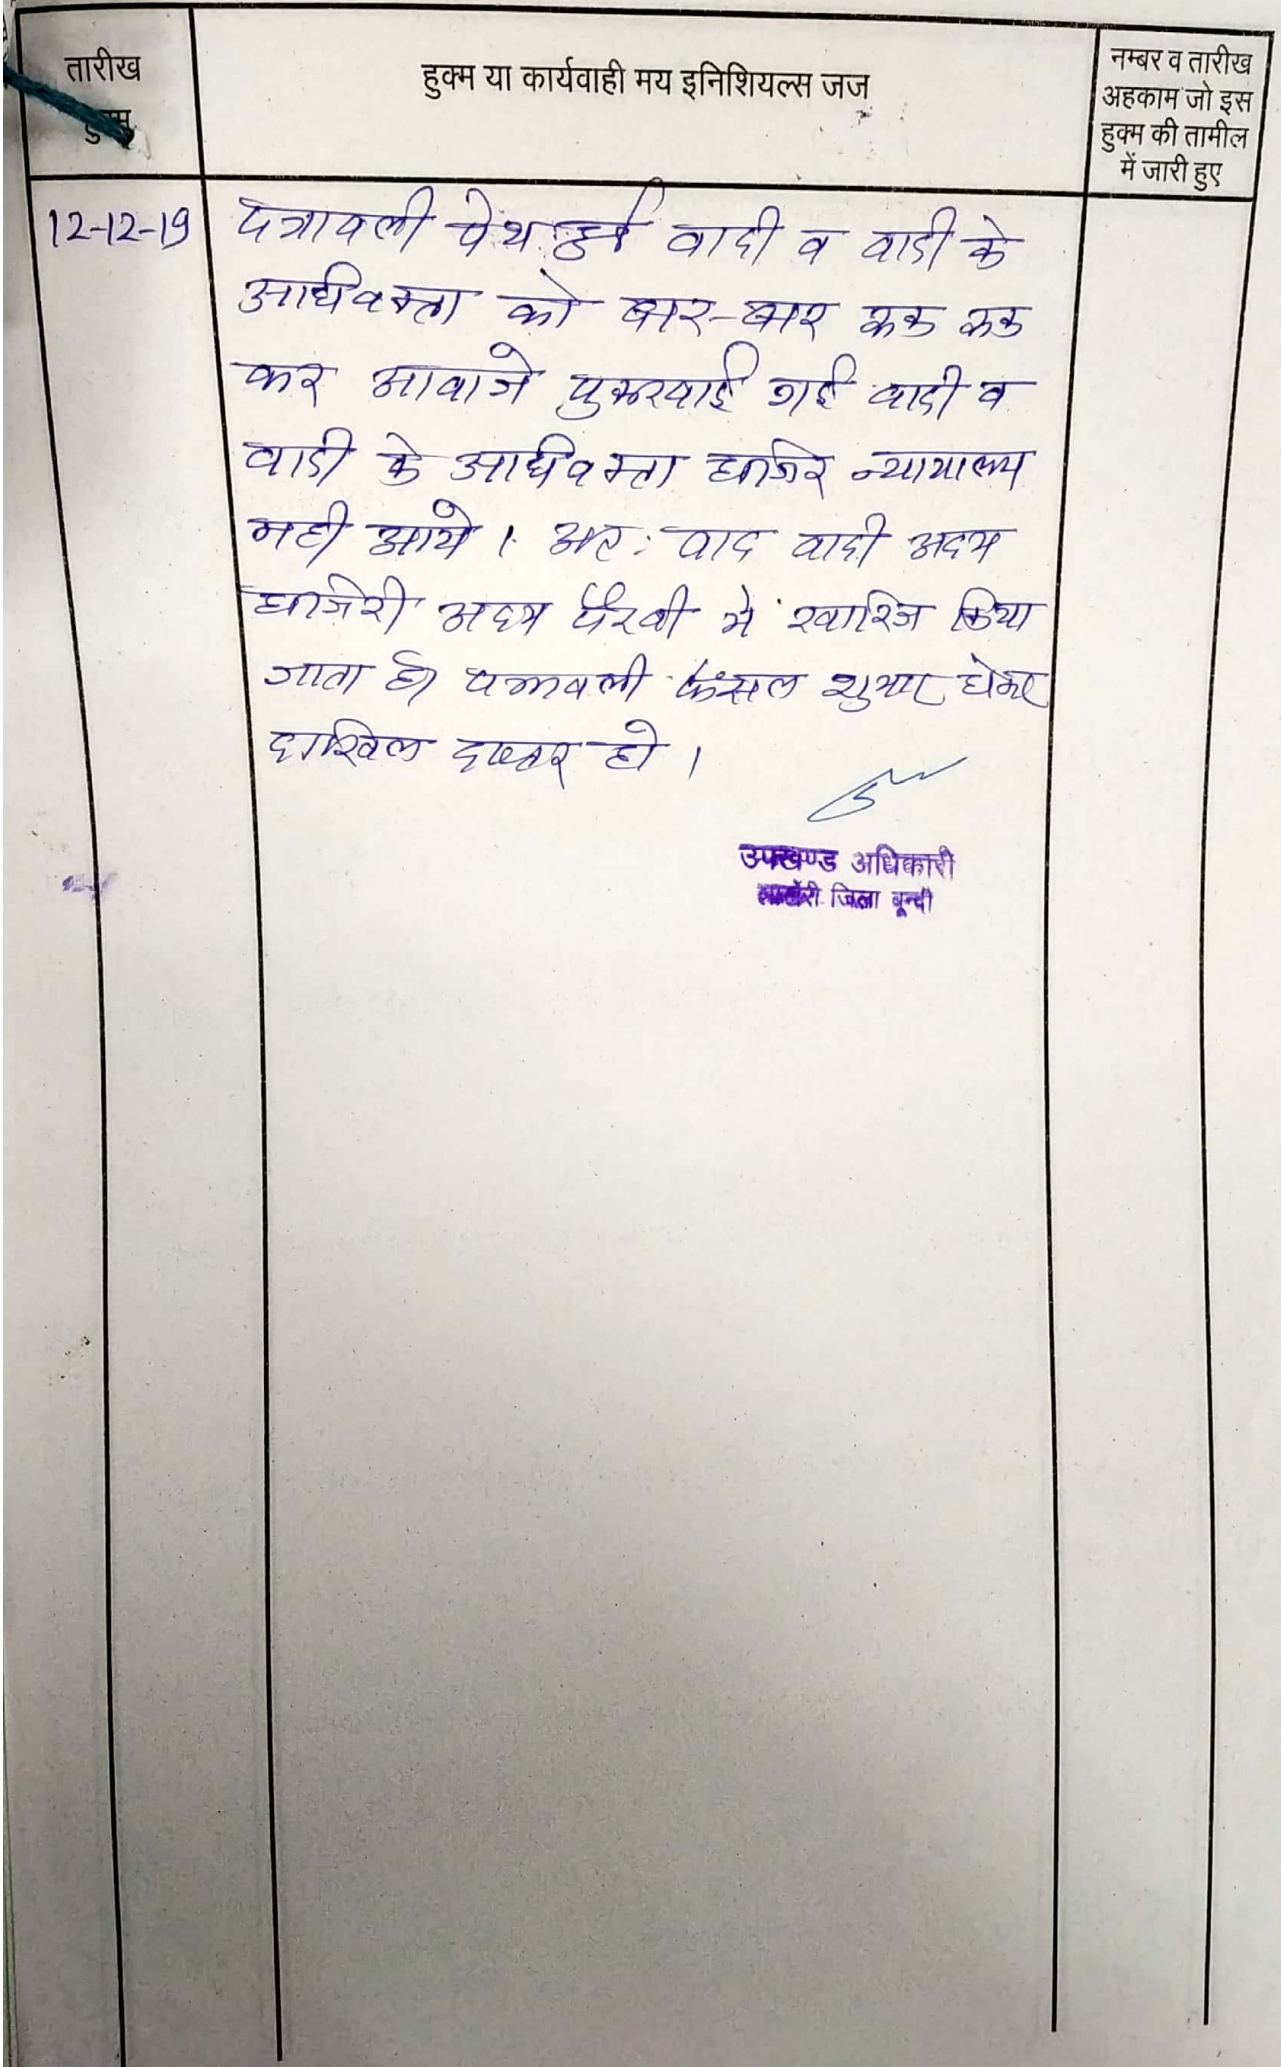 तारीख
हुक्म
हुक्म या कार्यवाही मय इनिशियल्स जज
नम्बर व तारीख
अहकाम जो इस
हुक्म की तामील
में जारी हुए
12-12-19
पत्रावली पेश हुई वादी व वादी के
अधिवक्ता को बार-बार रूक रूक
कर आवाजे पुकरवाई गई वादी व
वादी के अधिवक्ता हाजिर न्यायालय
नही आये । अतः वाद वादी अदम
हाजिरी अदम पैरवी में खारिज किया
जाता है। पत्रावली फैसल शुमार होकर
दाखिल दफ्तर हो ।
उपखण्ड अधिकारी
लाखेरी जिला बून्दी